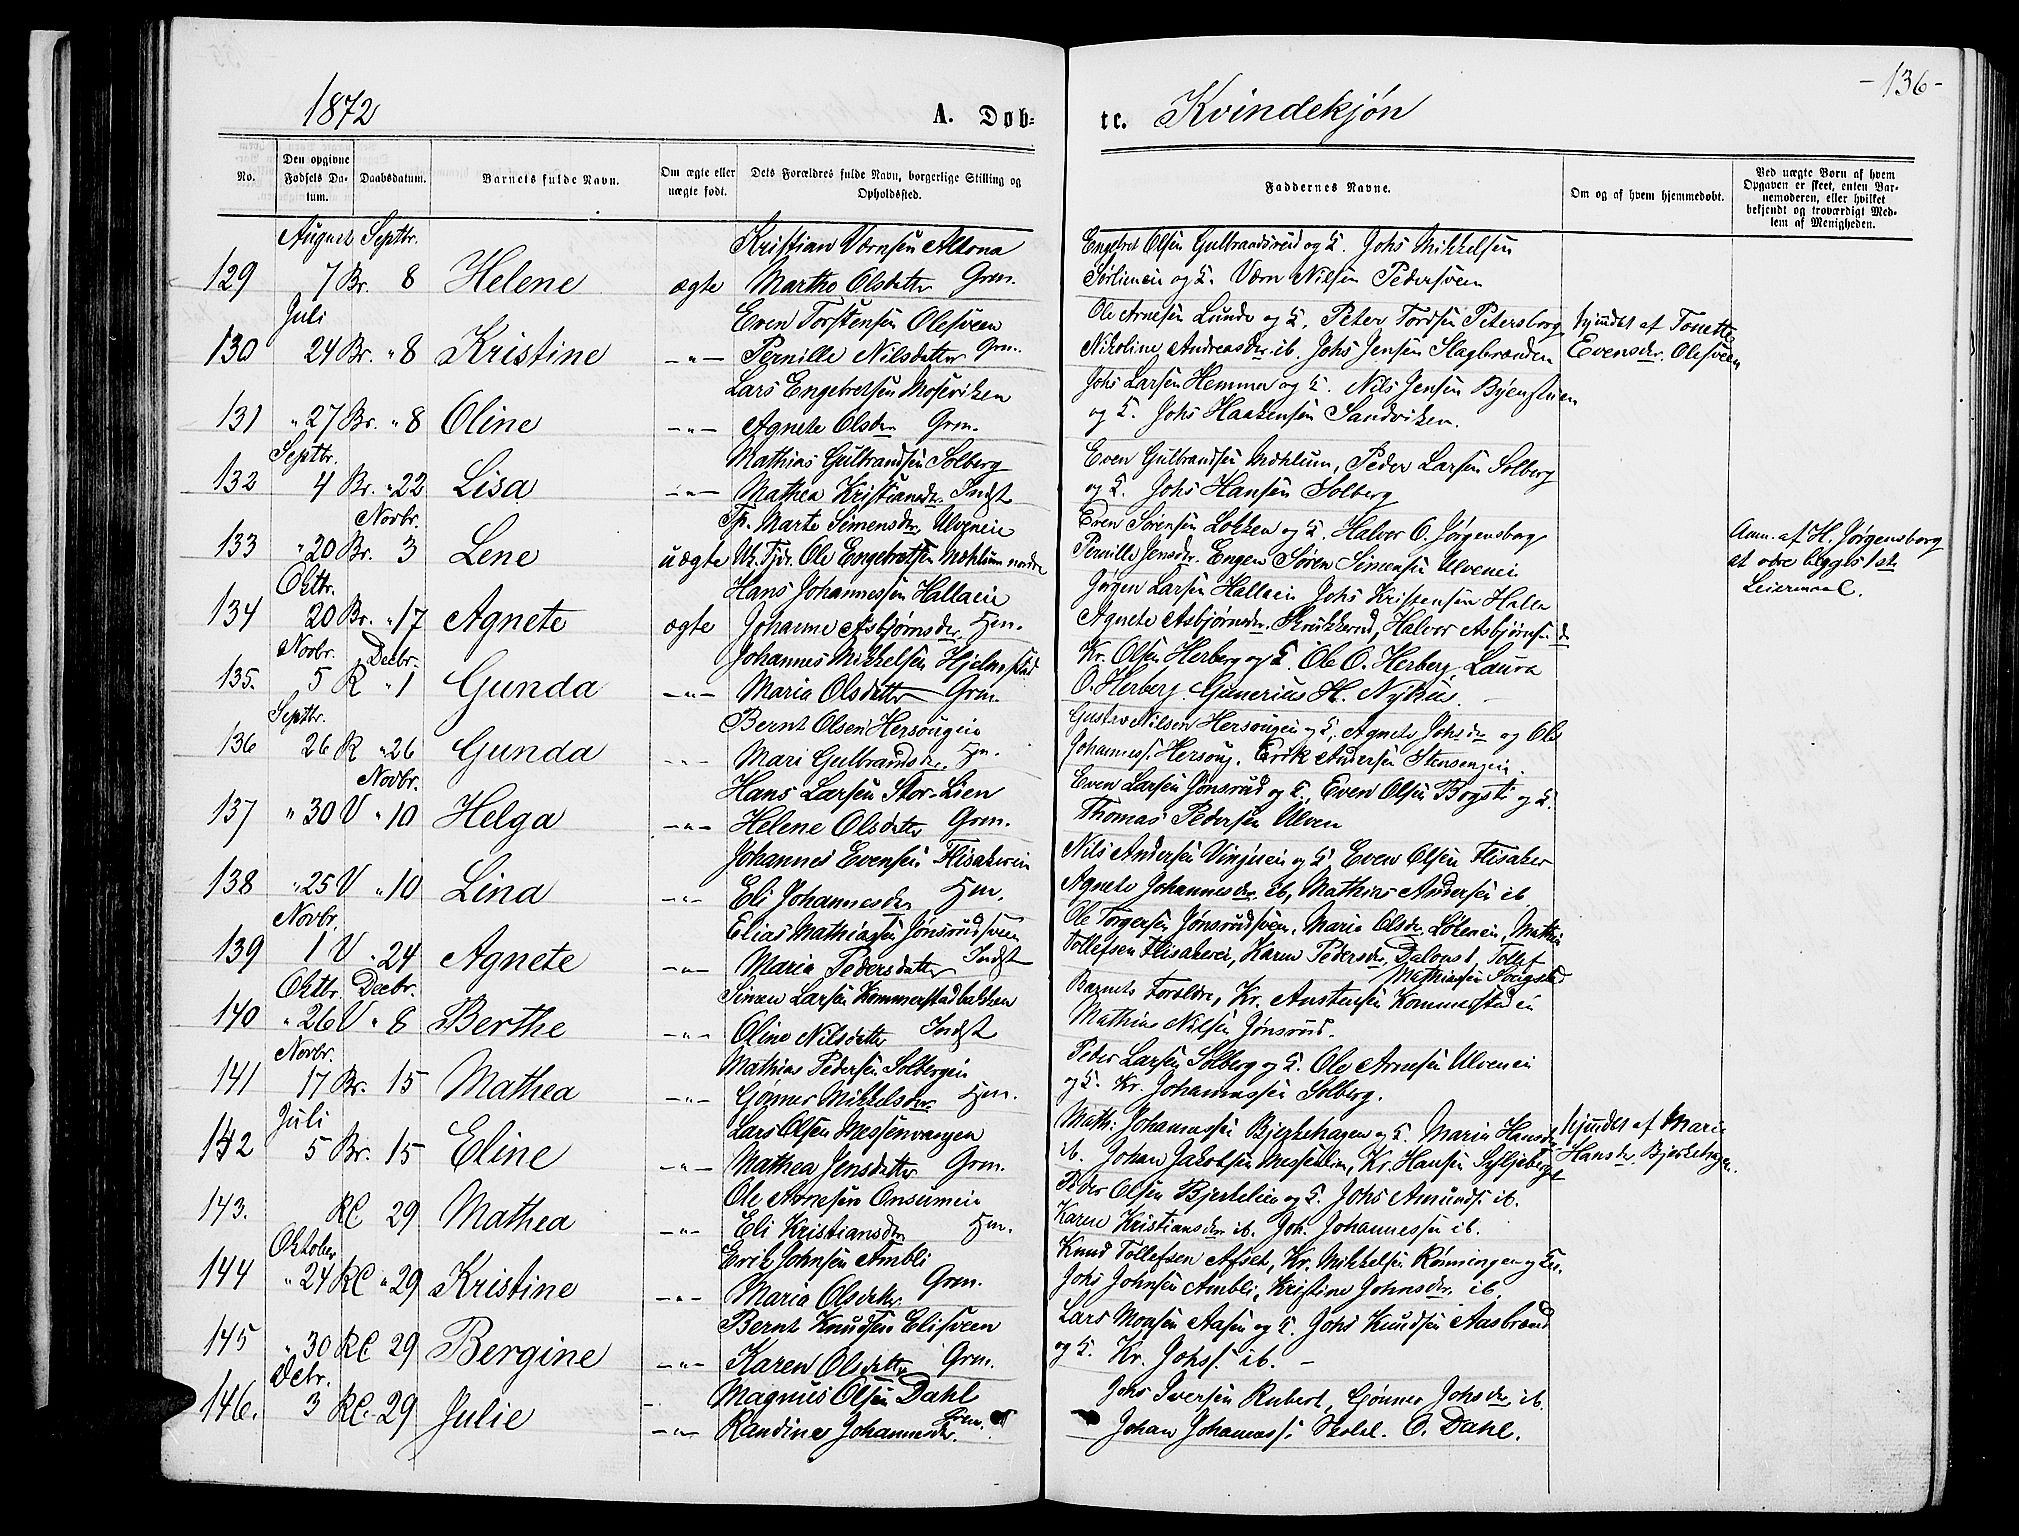 1872 A. Døb- te. Kvindekjøn -136-
No. Den opgivne Fødsels Datum. Daabsdatum. Barnets fulde Navn. Om ægte eller uægte født. Dets Forældres fulde Navn, borgerlige Stilling og Opholdssted. Faddernes Navne. Om og af hvem hjemmedøbt. Ved uægte Børn af hvem Opgaven er skeet, enten Barnemoderen, eller hvilket bekjendt og troværdigt Medlem af Menigheden.
August Septbr. Kristian Vornsen Altona Engebret Olsen Gulbrandsrud og K. Johs Mikkelsen
129 7 Br. 8 Helene ægte Marthe Olsdatter Grm. Sørlieneie og K. Vorn Nilsen Pedersveen
Juli Even Torstensen Olesveen Ole Arnesen Lunde og K. Peter Tordsen Petersborg hjmdøbt af Tonette
130 24 Br. " 8 Kristine -"- Pernille Nilsdatter Grm. Nikoline Andreasdr. ib. Johs Jensen Slagbrænden Evensdr. Olesveen
Lars Engebretsen Moseviken Johs Larsen Hemma og K. Nils Jensen Byenstuen
131 " 27 Br. " 8 Oline -"- Agnete Olsdr. Grm. og K. Johs Haakensen Sandviken.
Septbr. Mathias Gulbrandsen Solberg Even Gulbrandsen Mohlum, Peder Larsen Solberg
132 4 Br. " 22 Lisa -"- Mathea Kristiansdr. Indst og K. Johs Hansen Solberg
Novbr. Tp. Marte Simensdr. Ulveneie Even Sørensen Løkken og K. Halvor O. Jørgensborg Anm. af H. Jørgensborg
133 " 20 Br. 3 Lene uægte Uk. Tjdr. Ole Engebretsen Mohlum nordre Pernille Jensdr. Engen Søren Simensen Ulveneie at være begges 1ste
Oktbr. Hans Johannessen Hallaeie Jørgen Larsen Hallaeie Johs Kristensen Halla Leiermaal.
134 20 Br. " 17 Agnete ægte Johanne Asbjørnsdr. Hm. Agnete Asbjørnsdr. Skrukkerud, Halvor Asbjørns. d
Novbr. Decbr. Johannes Mikkelsen Hjelmstad Kr. Olsen Herberg og K. Ole O. Herberg, Laura
135. 5 R " 1 Gunda -"- Maria Olsdatter Grm. O. Herberg. Gunerius H. Nyhus.
Septbr. Bernt Olsen Hersougeie Gustav Nilsen Hersougeie og K, Agnete Johsdr. og Ole
136 26 R " 26 Gunda -"- Mari Gulbrandsdr. Hm. Johanness. Hersoug. Erik Andersen Stensengeie.
Novbr. Hans Larsen Stor-Lien Even Larsen Jønsrud og K. Even Olsen Bogsti og K.
137 " 30 V " 10 Helga -"- Helene Olsdatter Grm. Thomas Pedersen Ulven
Johannes Evensen Flisakereie Nils Andersen Vinjueie og K. Even Olsen Flisaker
138 " 25 V " 10 Lina -"- Eli Johannesdr. Hm. Agnete Johannesdr. ib, Mathias Andersen ib.
Novbr. Elias Mathiassen Jønsrudsveen Ole Torgersen Jønsrudsveen, Marie Olsdr. Lökeneie, Mathias
139 1 V " 24 Agnete -"- Maria Pedersdatter Indst Tollefsen Flisakereie, Karen Pedersdr. Tollef
Oktbr. Decbr. Simen Larsen Kommerstadbakken Barnets Forældre, Kr. Austensen Kommerstadeie
140 " 26 V " 8 Berthe -"- Oline Nilsdatter Indst Mathias Nilsen Jønsrud.
Novbr. Mathias Pedersen Solbergeie Peder Larsen Solberg og K. Ole Arnesen Ulveneie
141 17 Br. 15 Mathea -"- Gönner Mikkelsdr. Hm. og K. Kr. Johannessen Solberg.
Juli Lars Olsen Messenvangen Math: Johannessen Bjerkehagen og K. Maria Hansdr. hjmdøbt af Marie
142 5 Br. 15 Eline -"- Mathea Jensdatter Grm. ib. Johan Jakobsen Messenlien, Kr. Hansen Syljeberget Hansdr. Bjerkehagen.
Ole Arnesen Onsumeie Peder Olsen Bjerkelien og K. Johs Amunds. ib.
143. RC. 29 Mathea -"- Eli Kristiansdr Hm. Karen Kristiansdr. ib. Joh. Johannessen ib.
Oktober Erik Johnsen Ambli Knud Tollefsen Afset, Kr. Mikkelsen Rønningen og K.
144 " 24 RC " 29 Kristine -"- Maria Olsdatter Grm. Johs Johnsen Ambli, Kristine Johnsdr. ib.
Bernt Knudsen Elisveen Lars Moasen Aasen og K. Johs Knudsen Aasbrænd
145 " 30 RC 29 Bergine -"- Karen Olsdatter Grm. og K. Kr. Johs. ib. -
Decbr. Magnus Olsen Dahl Johs Iversen Rubert, Gönner Johsdr. ib.
146. 3 RC. 29 Julie -"- Randine Johannesdr. Grm. Johan Johanness. O. Dahl.